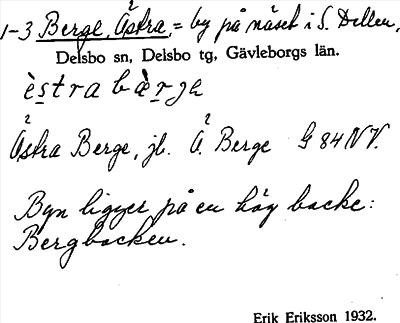 1-3 Berge, Åstra, = by på näset i S. Dellen,
Delsbo sn, Delsbo tg, Gävleborgs län.
èstra bær̀ge
Åstra Berge, jb. Å. Berge G 84 NV.
Byn ligger på en hög backe:
Bergbacken.
Erik Eriksson 1932.